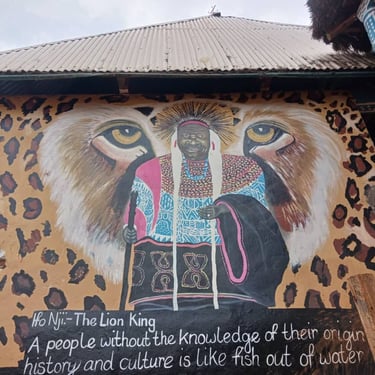 Ifo Nji:- The Lion King
A people without the knowledge of their origin
history and culture is like fish out of water